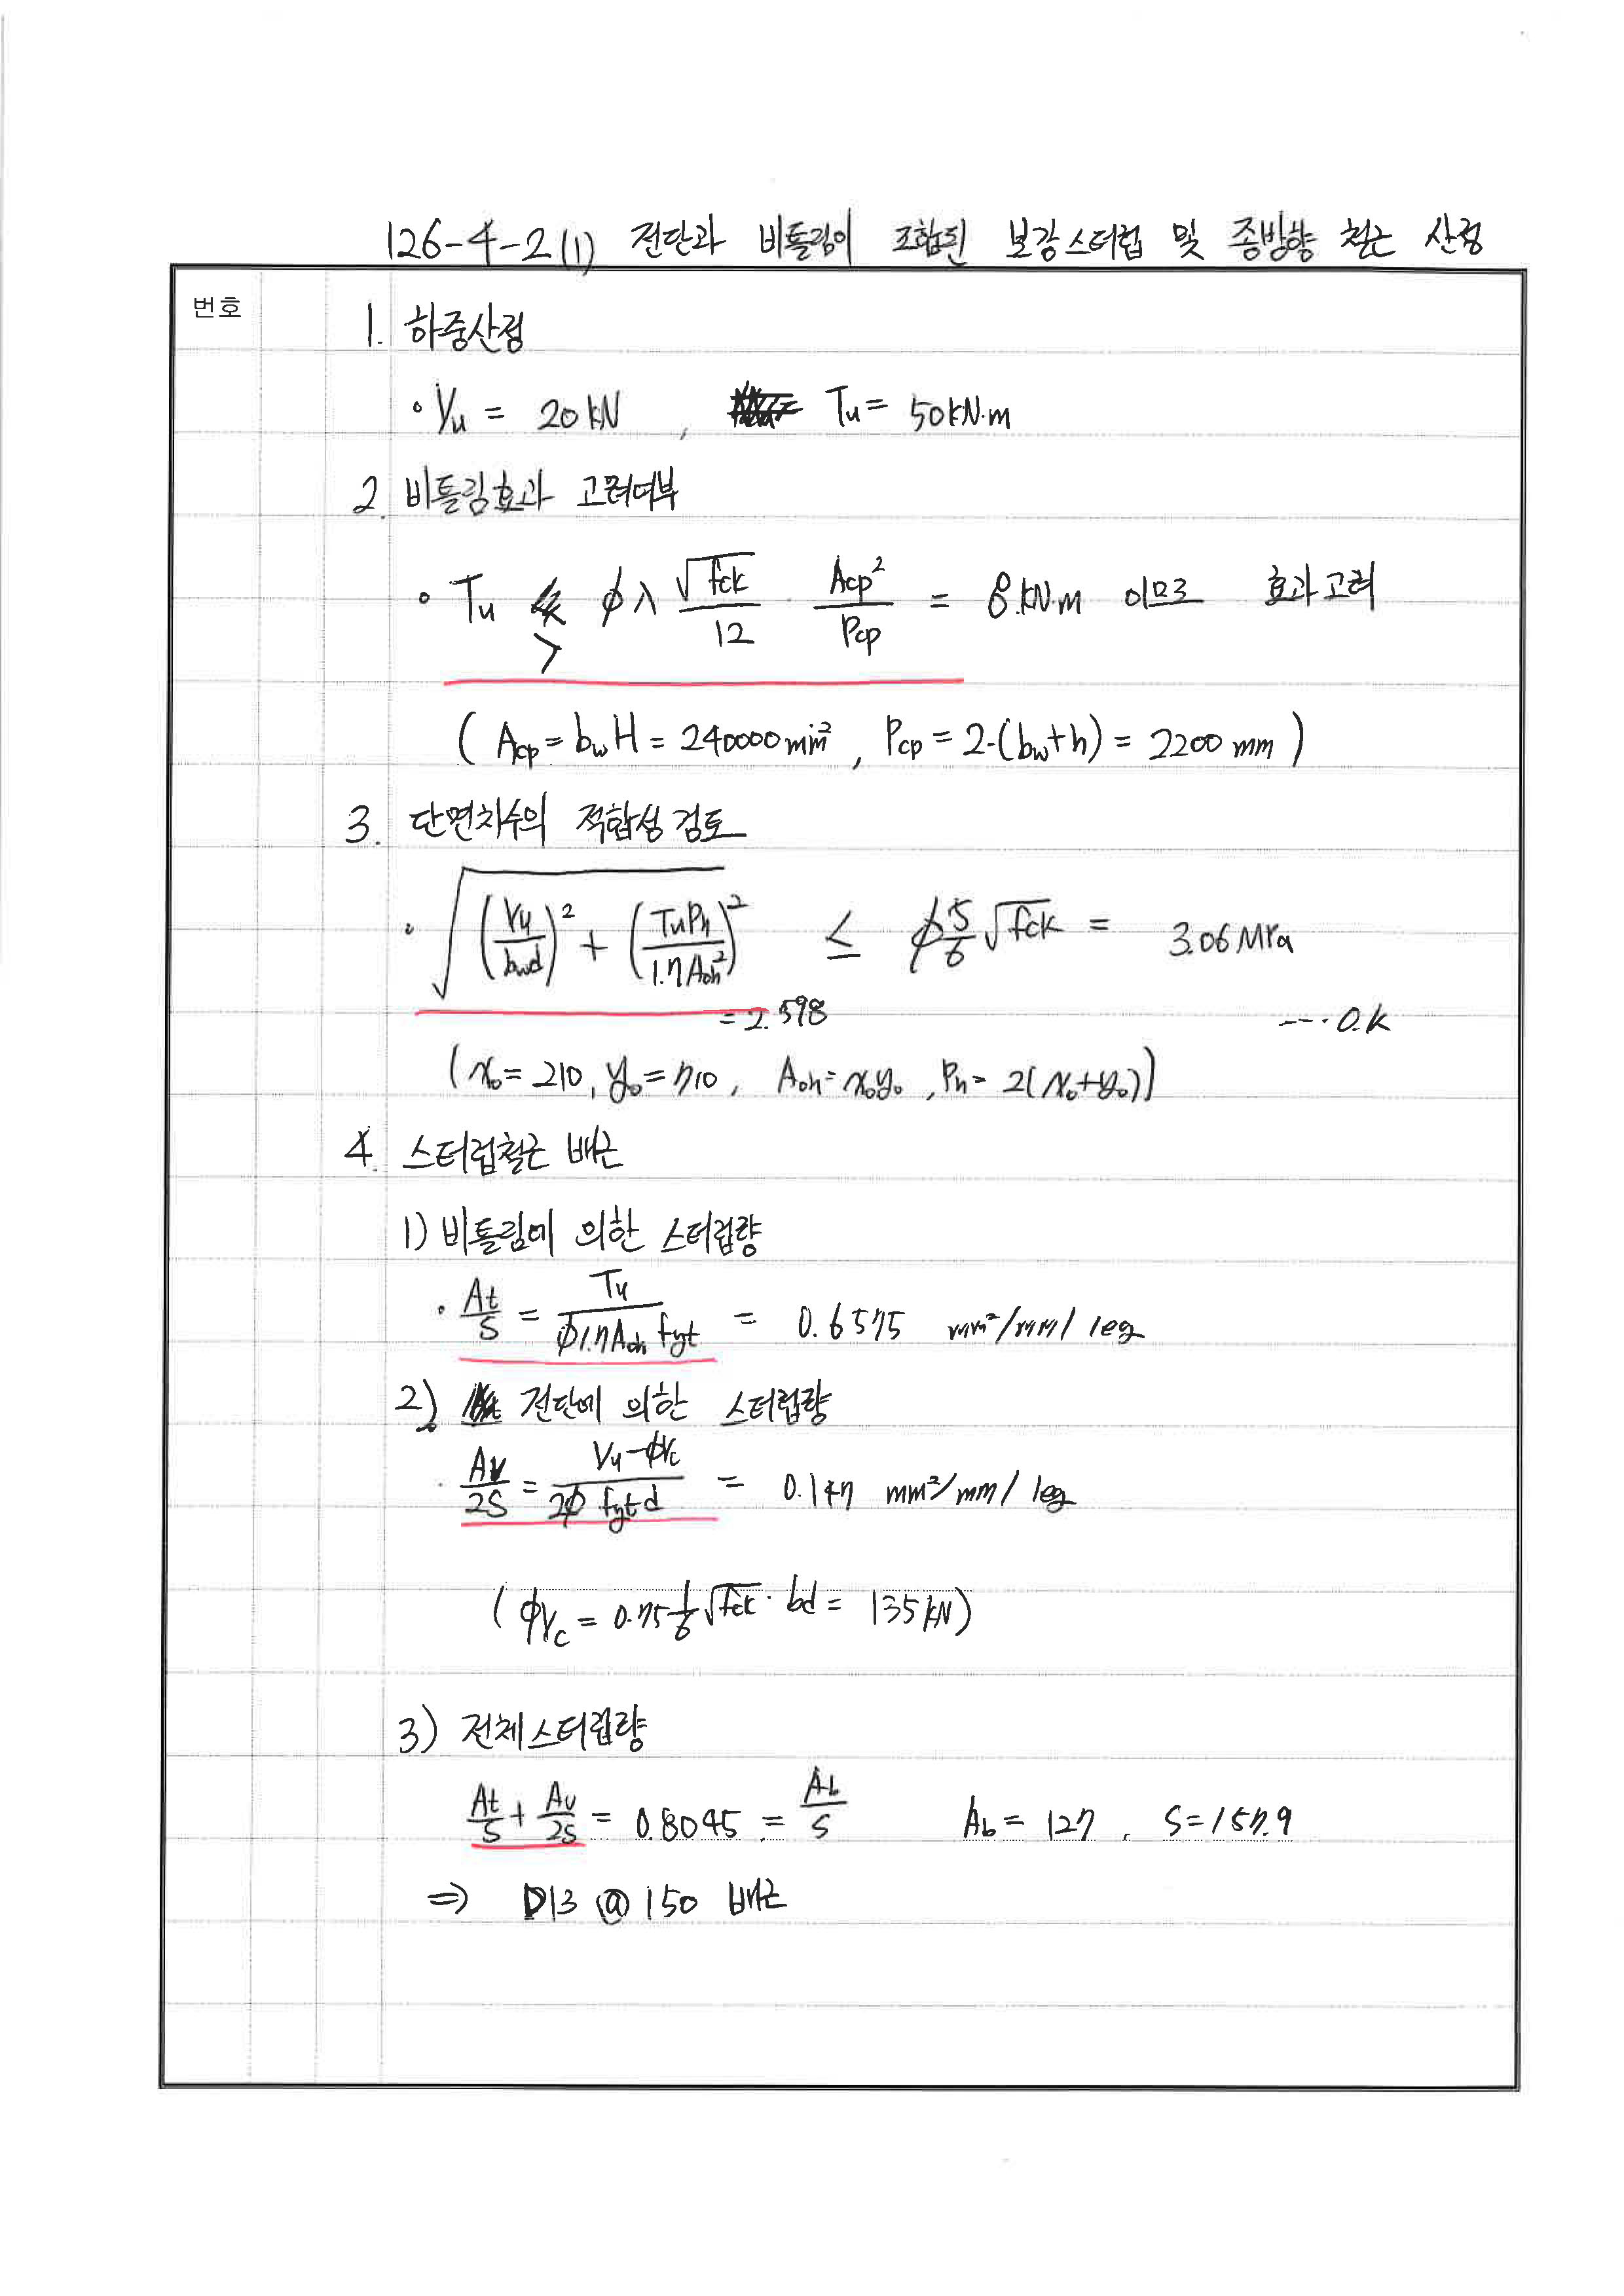 126-4-2(1) 전단과 비틀림이 조합된 보강스터럽 및 종방향 철근 산정
번호
1. 하중산정
• Vu = 20kN , Tu = 50kN·m
2. 비틀림효과 고려여부
• Tu > φλ √fck/12 · Acp²/Pcp = 8.kN·m 이므로 효과고려
( Acp = bwH = 240000mm², Pcp = 2·(bw+h) = 2200 mm )
3. 단면치수의 적합성 검토
• √((Vu/bwd)² + (TuPh/1.7Aoh²)²) ≤ φ5/6√fck = 3.06 MPa
= 2.598 ---- O.K
(x₀ = 210, y₀ = 710, Aoh = x₀y₀, Ph = 2(x₀+y₀))
4. 스터럽철근 배근
1) 비틀림에 의한 스터럽량
• At/S = Tu/φ1.7Aoh fyt = 0.6575 mm²/mm/leg
2) 전단에 의한 스터럽량
• Av/2S = Vu-φVc/2φ fyt d = 0.147 mm²/mm/leg
( φVc = 0.75 1/6 √fck · bd = 135kN)
3) 전체스터럽량
At/S + Av/2S = 0.8045 = Ab/S Ab = 127 , S = 157.9
⇒ D13 @ 150 배근